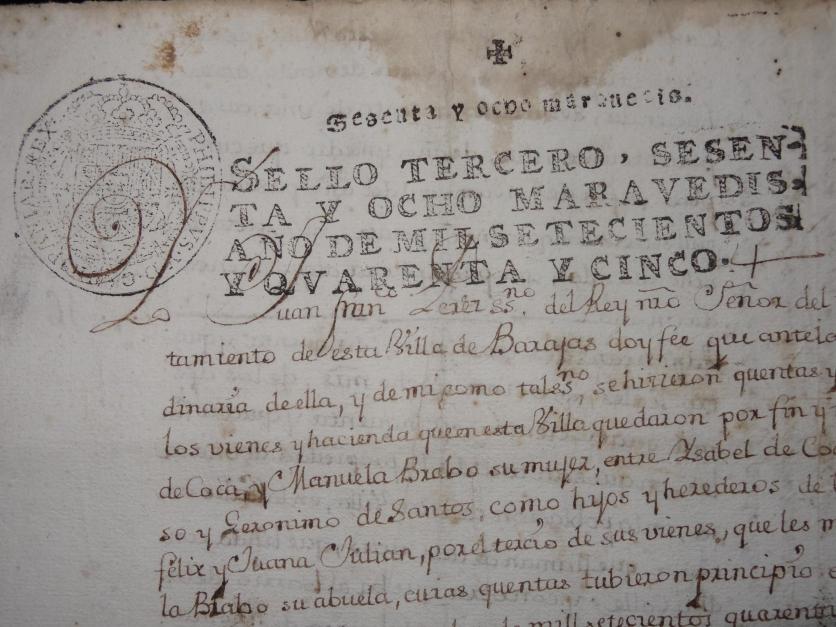 Sesenta y ocho marauedis.
SELLO TERCERO, SESEN-
TA Y OCHO MARAVEDIS
AÑO DE MIL SETECIENTOS
Y QVARENTA Y CINCO.
PHILIPVS
Yo Juan fran.co Perez ss.no del Rey nro Señor del
tamiento de esta Villa de Barajas doy fee que ante
dinaria de ella, y de mi como tal ss.no, se hizieron quentas y
los vienes y hacienda que en esta Villa quedaron por fin y
de Coca, y Manuela Brabo su mujer, entre Ysabel de Co
so y Geronimo de Santos, como hijos y herederos de
félix y Juana Julian, por el tercio de sus vienes, que les m
la Brabo su abuela, cuias quentas tubieron principio
de mill setecientos quarent